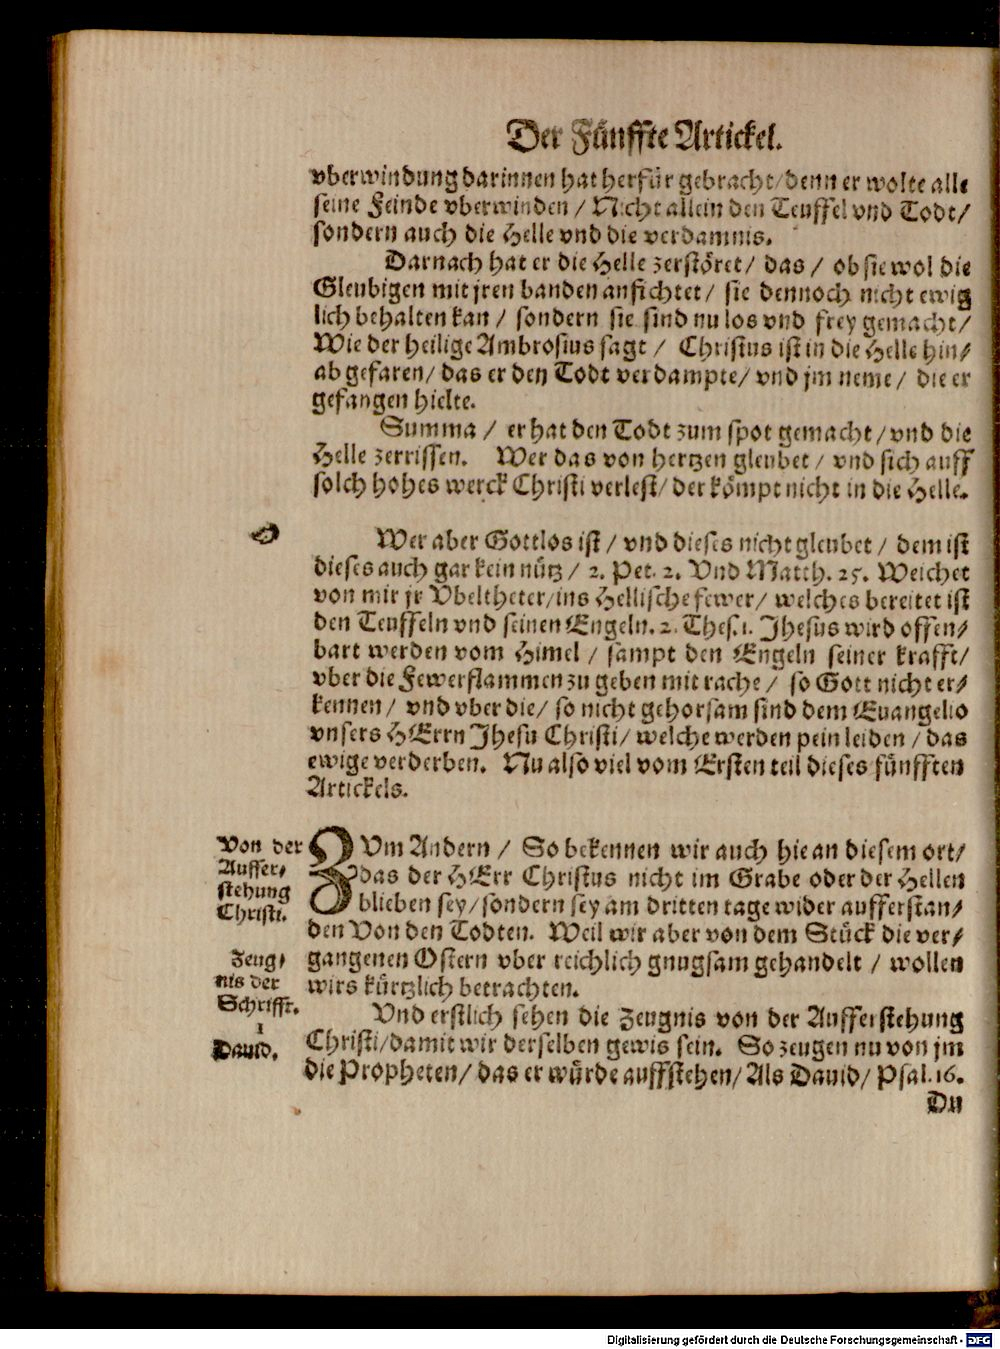 Der Fünffte Artickel.
vberwindung darinnen hat herfür gebracht/denn er wolte alle
seine Feinde vberwinden / Nicht allein den Teuffel vnd Todt/
sondern auch die Helle vnd die verdamnis.
Darnach hat er die Helle zerstöret/ das / ob sie wol die
Gleubigen mit jren banden anfichtet/ sie dennoch nicht ewig
lich behalten kan / sondern sie sind nu los vnd frey gemacht/
Wie der heilige Ambrosius sagt / Christus ist in die Helle hin/
ab gefaren/ das er den Todt verdampte/ vnd jm neme / die er
gefangen hielte.
Summa / er hat den Todt zum spot gemacht/vnd die
Helle zerrissen. Wer das von hertzen gleubet / vnd sich auff
solch hohes werck Christi verlest/ der kömpt nicht in die Helle.
Wer aber Gottlos ist / vnd dieses nicht gleubet / dem ist
dieses auch gar kein nütz / 2. Pet. 2. Vnd Matth. 25. Weichet
von mir jr Vbeltheter/ins Hellische fewer/ welches bereitet ist
den Teuffeln vnd seinen Engeln. 2. Thes. 1. Jhesus wird offen/
bart werden vom Himel / sampt den Engeln seiner krafft/
vber die Fewerflammen zu geben mit rache / so Gott nicht er/
kennen / vnd vber die/ so nicht gehorsam sind dem Euangelio
vnsers HErrn Jhesu Christi/ welche werden pein leiden / das
ewige verderben. Nu also viel vom Ersten teil dieses fünfften
Artickels.
Von der
Auffer/
stehung
Christi.
ZVm Andern / So bekennen wir auch hie an diesem ort/
das der HErr Christus nicht im Grabe oder der Hellen
blieben sey/sondern sey am dritten tage wider aufferstan/
den Von den Todten. Weil wir aber von dem Stück die ver/
gangenen Ostern vber reichlich gnugsam gehandelt / wollen
wirs kürtzlich betrachten.
Zeug/
nis der
Schrifft.
1
Dauid.
Vnd erstlich sehen die Zeugnis von der Aufferstehung
Christi/damit wir derselben gewis sein. So zeugen nu von jm
die Propheten/ das er würde auffstehen/ Als Dauid/ Psal. 16.
Du
Digitalisierung gefördert durch die Deutsche Forschungsgemeinschaft - DFG